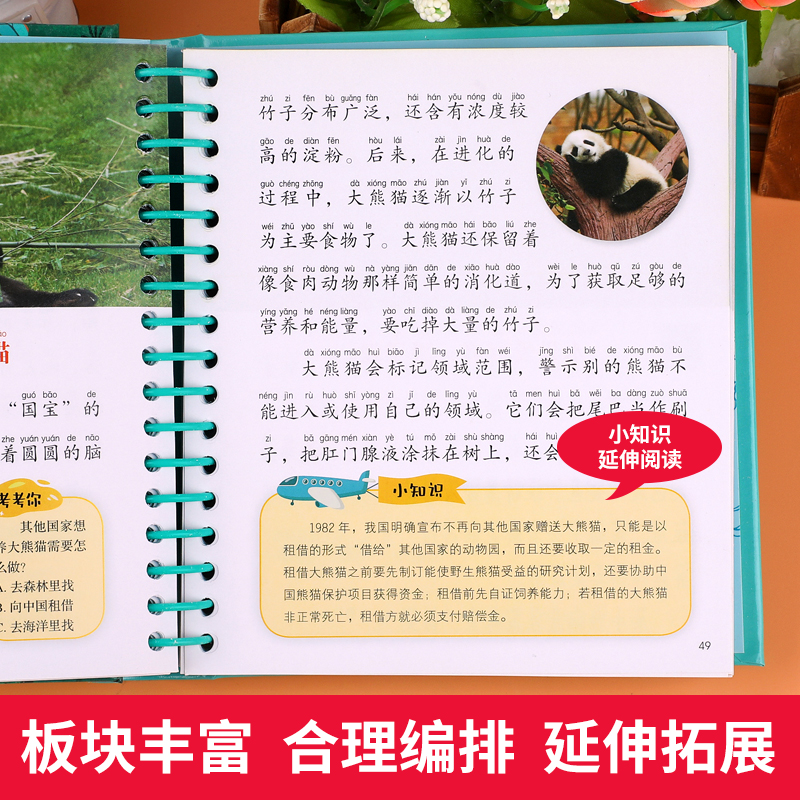 猫
guó bǎo de
“国宝”的
zhe yuán yuán de nǎo
着圆圆的脑
考考你
其他国家想
养大熊猫需要怎
么做?
A. 去森林里找
B. 向中国租借
C. 去海洋里找
zhú zi fēn bù guǎng fàn hái hán yǒu nóng dù jiào
竹子分布广泛，还含有浓度较
gāo de diàn fěn hòu lái zài jìn huà de
高的淀粉。后来，在进化的
guò chéng zhōng dà xióng māo zhú jiàn yǐ zhú zi
过程中，大熊猫逐渐以竹子
wéi zhǔ yào shí wù le dà xióng māo hái bǎo liú zhe
为主要食物了。大熊猫还保留着
xiàng shí ròu dòng wù nà yàng jiǎn dān de xiāo huà dào wèi le huò qǔ zú gòu de
像食肉动物那样简单的消化道，为了获取足够的
yíng yǎng hé néng liàng yào chī diào dà liàng de zhú zi
营养和能量，要吃掉大量的竹子。
dà xióng māo huì biāo jì lǐng yù fàn wéi jǐng shì bié de xióng māo bù
大熊猫会标记领域范围，警示别的熊猫不
néng jìn rù huò shǐ yòng zì jǐ de lǐng yù tā men huì bǎ wěi ba dàng zuò shuā
能进入或使用自己的领域。它们会把尾巴当作刷
zi bǎ gāng mén xiàn yè tú mǒ zài shù shàng hái huì
子，把肛门腺液涂抹在树上，还会
小知识
延伸阅读
小知识
1982 年，我国明确宣布不再向其他国家赠送大熊猫，只能是以
租借的形式“借给”其他国家的动物园，而且还要收取一定的租金。
租借大熊猫之前要先制订能使野生熊猫受益的研究计划，还要协助中
国熊猫保护项目获得资金；租借前先自证饲养能力；若租借的大熊猫
非正常死亡，租借方就必须支付赔偿金。
49
板块丰富 合理编排 延伸拓展